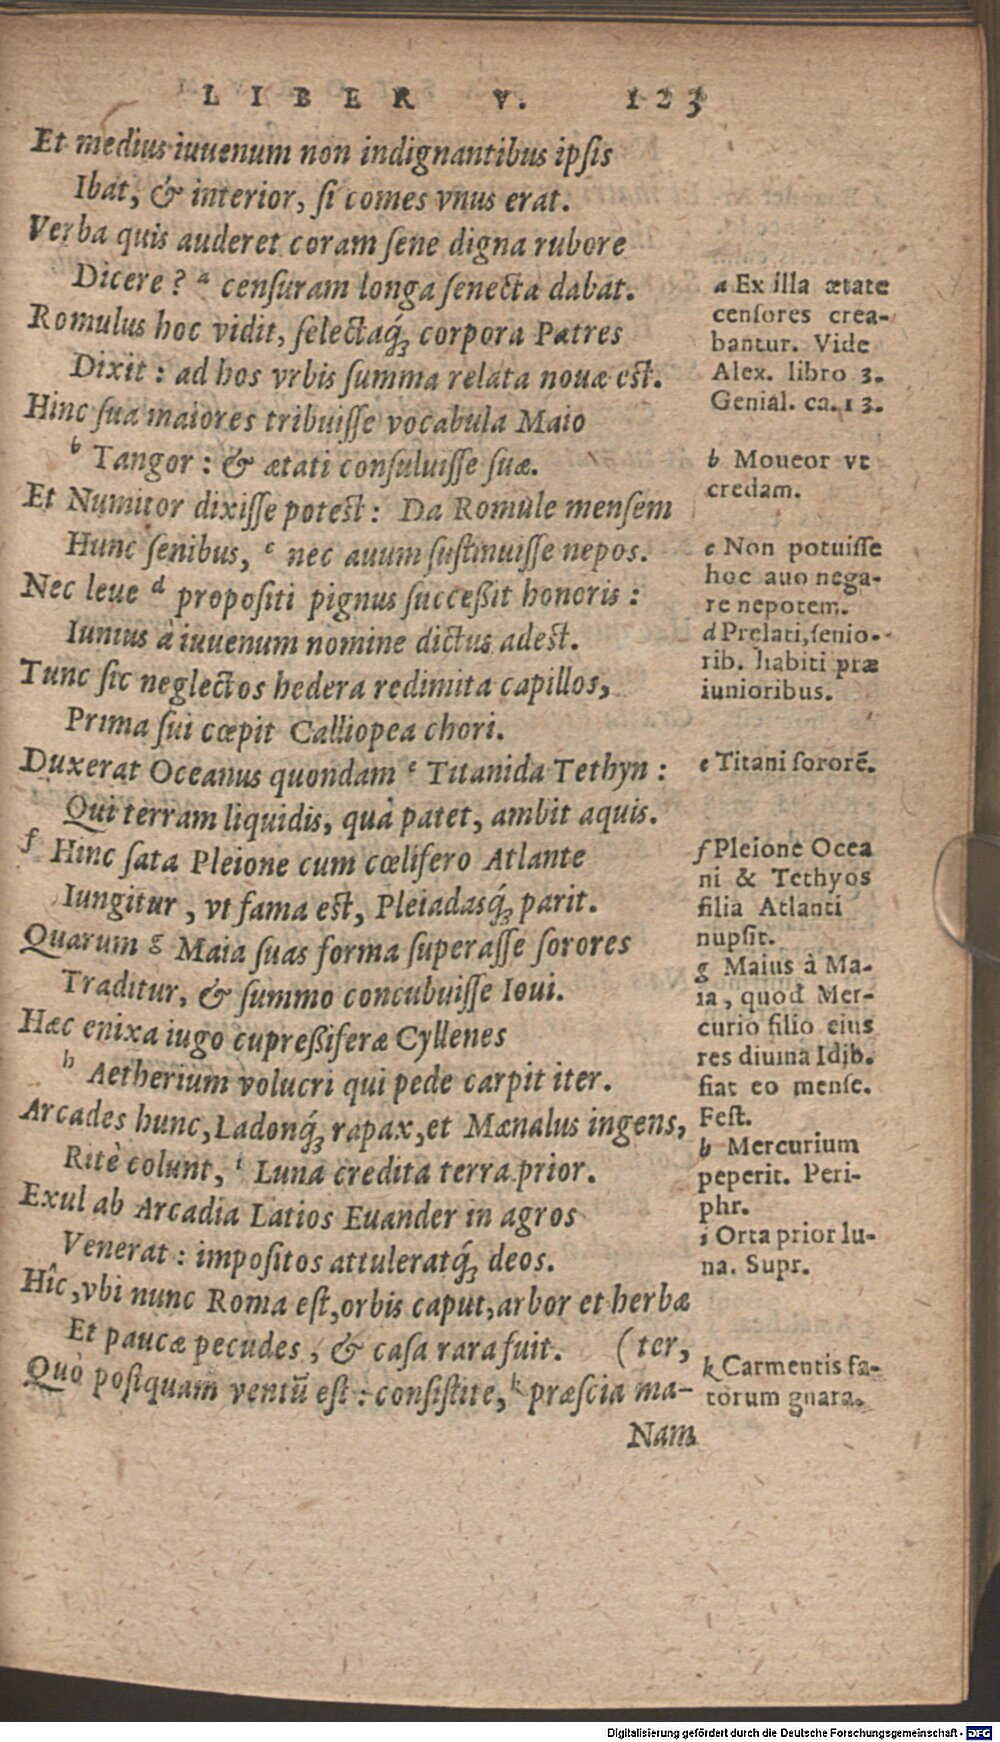 LIBER V. 123
Et medius iuuenum non indignantibus ipſis
Ibat, & interior, ſi comes vnus erat.
Verba quis auderet coram ſene digna rubore
Dicere? a cenſuram longa ſenecta dabat.
Romulus hoc vidit, ſelectaq́; corpora Patres
Dixit: ad hos vrbis ſumma relata nouæ est.
Hinc ſua maiores tribuiſſe vocabula Maio
b Tangor: & ætati conſuluiſſe ſuæ.
Et Numitor dixiſſe potest: Da Romule menſem
Hunc ſenibus, c nec auum ſuſtinuiſſe nepos.
Nec leue d propoſiti pignus ſucceßit honoris:
Iunius à iuuenum nomine dictus adest.
Tunc ſic neglectos hedera redimita capillos,
Prima ſui cœpit Calliopea chori.
Duxerat Oceanus quondam e Titanida Tethyn:
Qui terram liquidis, quà patet, ambit aquis.
f Hinc ſata Pleione cum cœlifero Atlante
Iungitur, vt fama est, Pleiadasq́; parit.
Quarum g Maia ſuas forma ſuperaſſe ſorores
Traditur, & ſummo concubuiſſe Ioui.
Hæc enixa iugo cupreßiferæ Cyllenes
h Aetherium volucri qui pede carpit iter.
Arcades hunc, Ladonq́; rapax, et Mænalus ingens,
Ritè colunt, i Luna credita terra prior.
Exul ab Arcadia Latios Euander in agros
Venerat: impoſitos attuleratq́; deos.
Hîc, vbi nunc Roma eſt, orbis caput, arbor et herbæ
Et paucæ pecudes, & caſa rara fuit. (ter,
Quò poſtquam ventū eſt: conſiſtite, k præſcia ma-
Nam
a Ex illa ætate
cenſores crea-
bantur. Vide
Alex. libro 3.
Genial. ca. 13.
b Moueor vt
credam.
c Non potuiſſe
hoc auo nega-
re nepotem.
d Prelati, ſenio-
rib. habiti præ
iunioribus.
e Titani ſororē.
f Pleione Ocea
ni & Tethyos
filia Atlanti
nupſit.
g Maius à Ma-
ia, quod Mer-
curio filio eius
res diuina Idib.
fiat eo menſe.
Feſt.
h Mercurium
peperit. Peri-
phr.
i Orta prior lu-
na. Supr.
k Carmentis fa-
torum gnara.
Digitalisierung gefördert durch die Deutsche Forschungsgemeinschaft - DFG